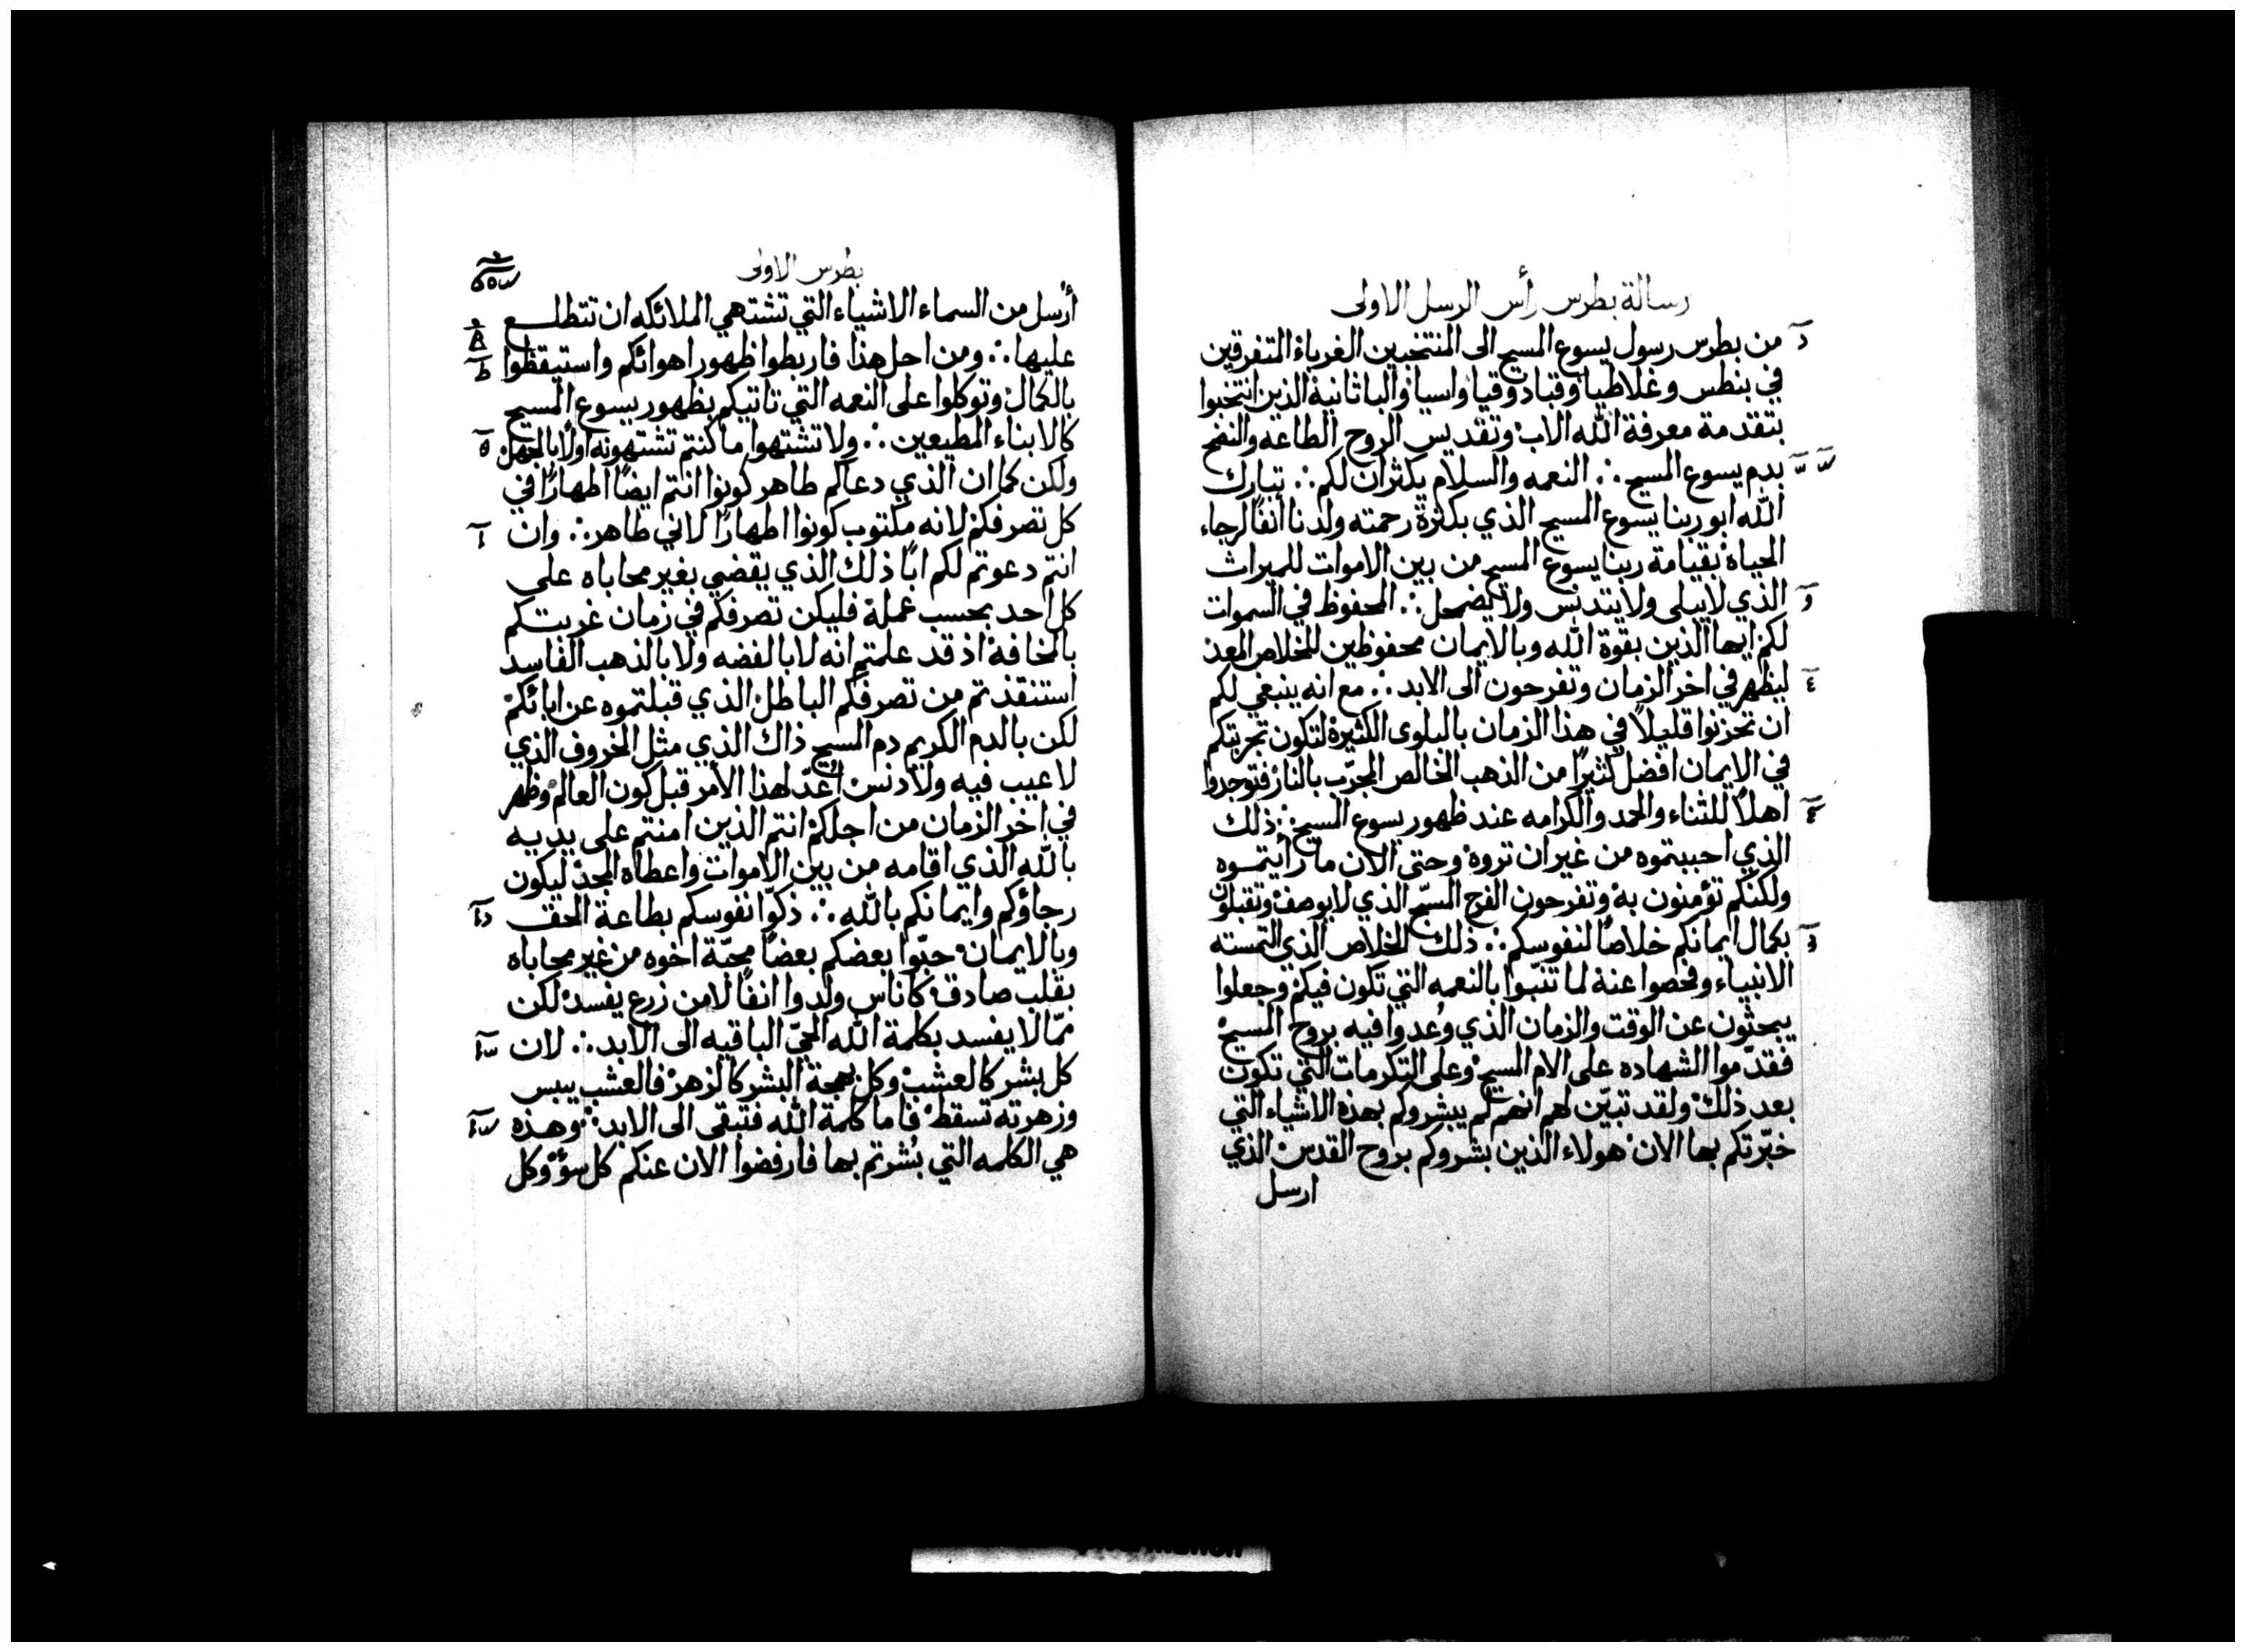 رسالة بطرس رأس الرسل الاولى
من بطرس رسول يسوع المسيح الى المنتخبين الغرباء المتفرقين
في بنطس وغلاطيا وقبادوقيا واسيا والباثانية الذين انتخبوا
بتقدمة معرفة الله الاب وتقديس الروح الطاعه والنضح
بدم يسوع المسيح ∴ النعمه والسلام يكثران لكم ∴ تبارك
الله ابو ربنا يسوع المسيح الذي بكثرة رحمته ولدنا انفًا لرجاء
الحياة بقيامة ربنا يسوع المسيح من بين الاموات للميراث
الذي لا يبلى ولا يتدنس ولا يضمحل ∴ المحفوظ في السموات
لكم ايها الذين بقوة الله وبالايمان محفوظين للخلاص المعد
ليظهر في اخر الزمان وتفرحون الى الابد ∴ مع انه ينبغي لكم
ان تحزنوا قليلاً في هذا الزمان بالبلوى الكثيرة لتكون تجربتكم
في الايمان افضل كثيرًا من الذهب الخالص المجرّب بالنار فتوجدوا
اهلاً للثناء والحمد والكرامه عند ظهور يسوع المسيح ∴ ذلك
الذي احببتموه من غير ان تروه وحتى الان ما رأيتموه
ولكنكم تؤمنون به وتفرحون الفرح المسبّح الذي لا يوصف وتقبلون
بكمال ايمانكم خلاصًا لنفوسكم ∴ ذلك الخلاص الذي التمسته
الانبياء وفحصوا عنه لما تنبّوا بالنعمه التي تكون فيكم وجعلوا
يبحثون عن الوقت والزمان الذي وُعدوا فيه بروح المسيح
فقدّموا الشهاده على الام المسيح وعلى التكرمات التي تكون
بعد ذلك ولقد تبيّن لهم انهم لم يبشروكم بهذه الاشياء التي
خبّرتكم بها الان هولاء الذين بشروكم بروح القدس الذي
ارسل
بطرس الاولى
أرسل من السماء الاشياء التي تشتهي الملائكه ان تتطلع
عليها ∴ ومن احل هذا فاربطوا ظهور اهوائكم واستيقظوا
بالكمال وتوكلوا على النعمه التي تاتيكم بظهور يسوع المسيح
كالابناء المطيعين ∴ ولا تشتهوا ما كنتم تشتهونه اولا بالجهل
ولكن كما ان الذي دعاكم طاهر كونوا انتم ايضًا اطهارًا في
كل تصرفكم لانه مكتوب كونوا اطهارًا لاني طاهر ∴ وان
انتم دعوتم لكم ابًا ذلك الذي يقضي بغير محاباه على
كل احد بحسب عمله فليكن تصرفكم في زمان غربتكم
بالمخافة اذ قد علمتم انه لا بالفضه ولا بالذهب الفاسد
استنقذتم من تصرفكم الباطل الذي قبلتموه عن ابائكم
لكن بالدم الكريم دم المسيح ذاك الذي مثل الخروف الذي
لا عيب فيه ولا دنس اُعدّ لهذا الأمر قبل كون العالم وظهر
في اخر الزمان من اجلكم انتم الذين امنتم على يديه
بالله الذي اقامه من بين الاموات واعطاه المجد ليكون
رجاؤكم وايمانكم بالله ∴ ذكّوا نفوسكم بطاعة الحق
وبالايمان حبّوا بعضكم بعضًا محبّة اخوه من غير محاباه
بقلب صادق كاناس ولدوا انفًا لا من زرع يفسد لكن
ممّا لا يفسد بكلمة الله الحيّ الباقيه الى الابد ∴ لان
كل بشر كالعشب وكل بهجة البشر كالزهر فالعشب ييبس
وزهرته تسقط فاما كلمة الله فتبقى الى الابد ∴ وهذه
هي الكلمه التي بُشرتم بها فارفضوا الان عنكم كل سؤ وكل